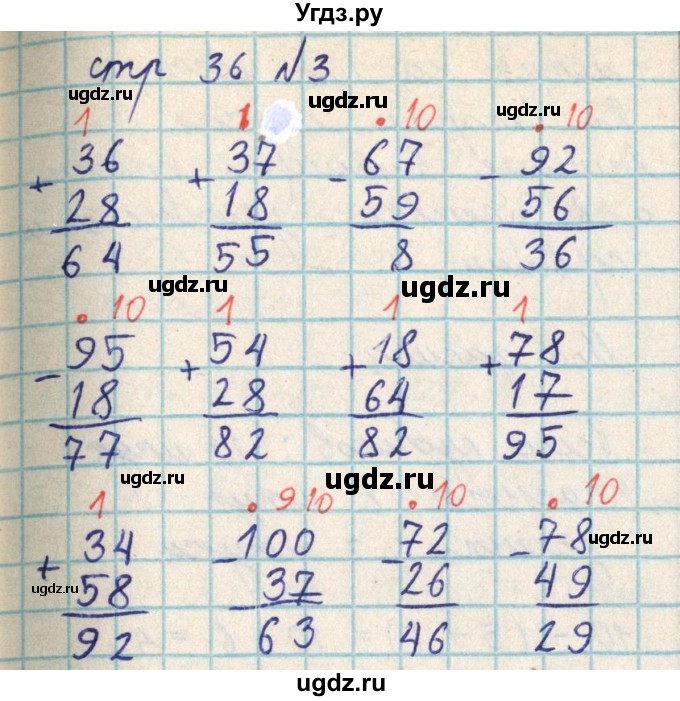 Угдз.ру
стр 36 №3
ugdz.ru ugdz.ru ugdz.ru
1 1 • 10 • 10
+ 36 + 37 - 67 - 92
28 18 59 56
64 55 8 36
ugdz.ru ugdz.ru
• 10 1 1 1
- 95 + 54 + 18 + 78
18 28 64 17
77 82 82 95
ugdz.ru ugdz.ru
1 • 9 10 • 10 • 10
ugdz.ru
+ 34 - 100 - 72 - 78
ugdz.ru
58 37 26 49
92 63 46 29
ugdz.ru